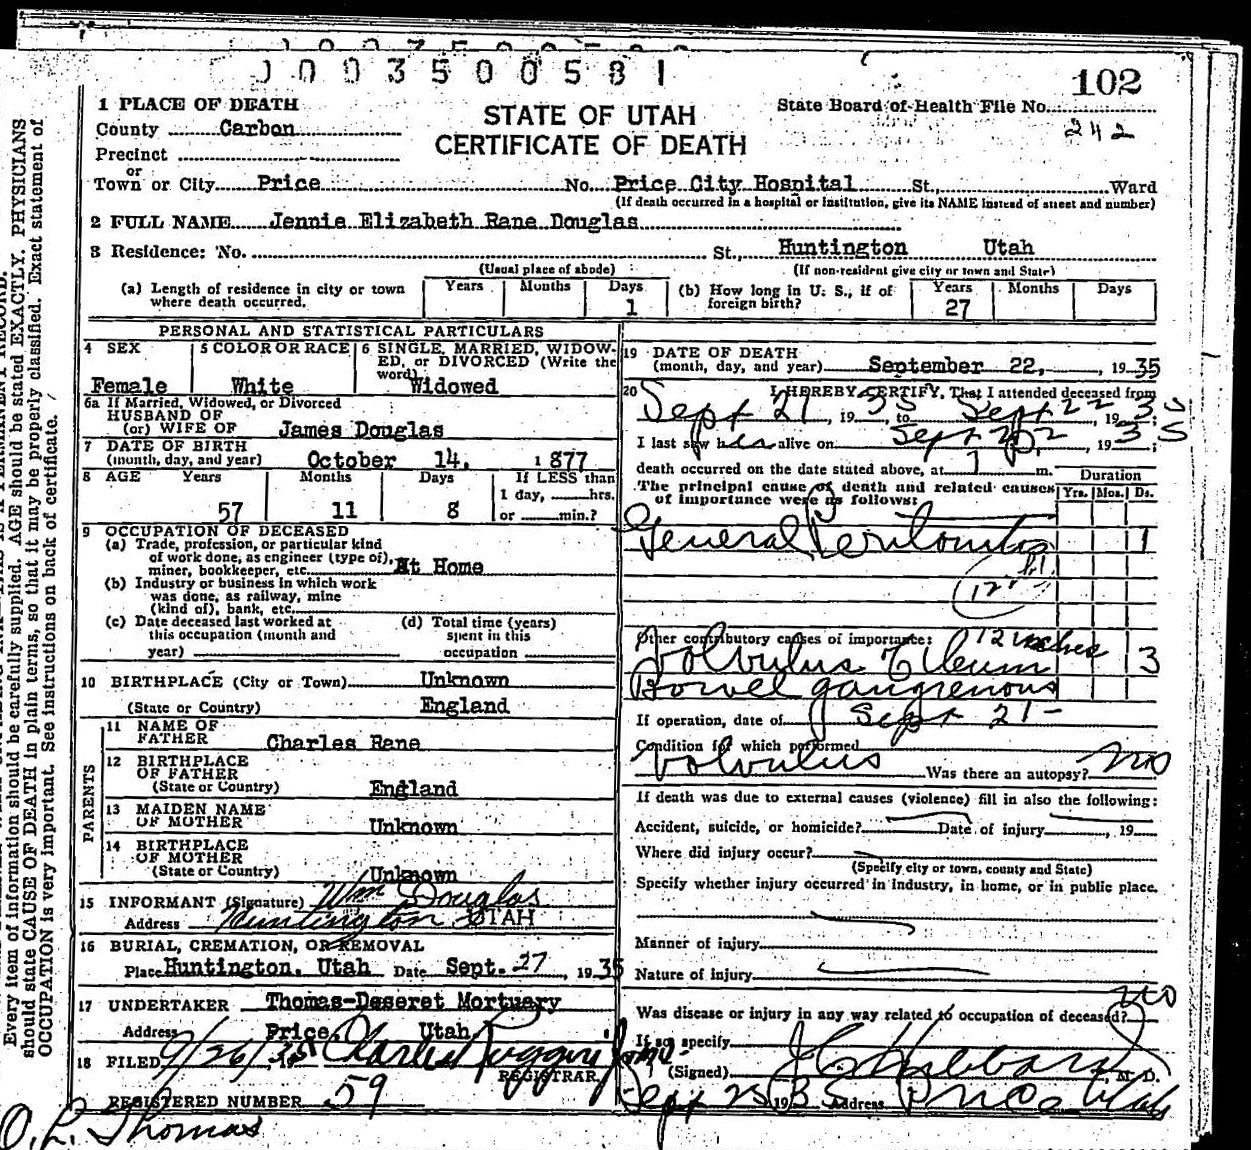 0 0 3 5 0 0 5 8 1
102
1 PLACE OF DEATH
STATE OF UTAH
CERTIFICATE OF DEATH
State Board of Health File No.
242
County Carbon
Precinct
or
Town or City Price No. Price City Hospital St., Ward
(If death occurred in a hospital or institution, give its NAME instead of street and number)
2 FULL NAME Jennie Elizabeth Rane Douglas
3 Residence: No. St., Huntington Utah
(Usual place of abode) (If non-resident give city or town and State)
(a) Length of residence in city or town where death occurred. Years Months Days 1
(b) How long in U. S., if of foreign birth? Years 27 Months Days
PERSONAL AND STATISTICAL PARTICULARS
4 SEX Female
5 COLOR OR RACE White
6 SINGLE, MARRIED, WIDOWED, or DIVORCED (Write the word) Widowed
6a If Married, Widowed, or Divorced
HUSBAND OF
(or) WIFE OF James Douglas
7 DATE OF BIRTH
(month, day, and year) October 14, 1877
8 AGE Years 57 Months 11 Days 8
If LESS than
1 day, hrs.
or min.?
9 OCCUPATION OF DECEASED
(a) Trade, profession, or particular kind
of work done, as engineer (type of),
miner, bookkeeper, etc. At Home
(b) Industry or business in which work
was done, as railway, mine
(kind of), bank, etc.
(c) Date deceased last worked at
this occupation (month and
year)
(d) Total time (years)
spent in this
occupation
10 BIRTHPLACE (City or Town) Unknown
(State or Country) England
PARENTS
11 NAME OF
FATHER Charles Rane
12 BIRTHPLACE
OF FATHER
(State or Country) England
13 MAIDEN NAME
OF MOTHER Unknown
14 BIRTHPLACE
OF MOTHER
(State or Country) Unknown
15 INFORMANT (Signature) Wm Douglas
Address Huntington UTAH
16 BURIAL, CREMATION, OR REMOVAL
Place Huntington, Utah Date Sept. 27, 1935
17 UNDERTAKER Thomas-Deseret Mortuary
Address Price, Utah.
18 FILED 9/26/ 19 Charles Ruggeri
REGISTRAR
REGISTERED NUMBER 59
O. L. Thomas
19 DATE OF DEATH
(month, day, and year) September 22, 1935
20 I HEREBY CERTIFY, That I attended deceased from
Sept 21, 1935, to Sept 22 1935;
I last saw her alive on Sept 22, 1935;
death occurred on the date stated above, at m.
The principal cause of death and related causes
of importance were as follows:
Duration
Yrs. Mos. Ds.
General Peritonitis 1
Other contributory causes of importance: 12 inches
Volvulus Ileum 3
Bowel gangrenous
If operation, date of Sept 21-
Condition for which performed
Volvulus Was there an autopsy? no
If death was due to external causes (violence) fill in also the following:
Accident, suicide, or homicide? Date of injury , 19
Where did injury occur?
(Specify city or town, county and State)
Specify whether injury occurred in industry, in home, or in public place.
Manner of injury
Nature of injury
Was disease or injury in any way related to occupation of deceased? no
If so specify
(Signed) J C Hubbard, M. D.
Sept 25 1935 Address Price Utah
Every item of information should be carefully supplied. AGE should be stated EXACTLY. PHYSICIANS
should state CAUSE OF DEATH in plain terms, so that it may be properly classified. Exact statement of
OCCUPATION is very important. See instructions on back of certificate.